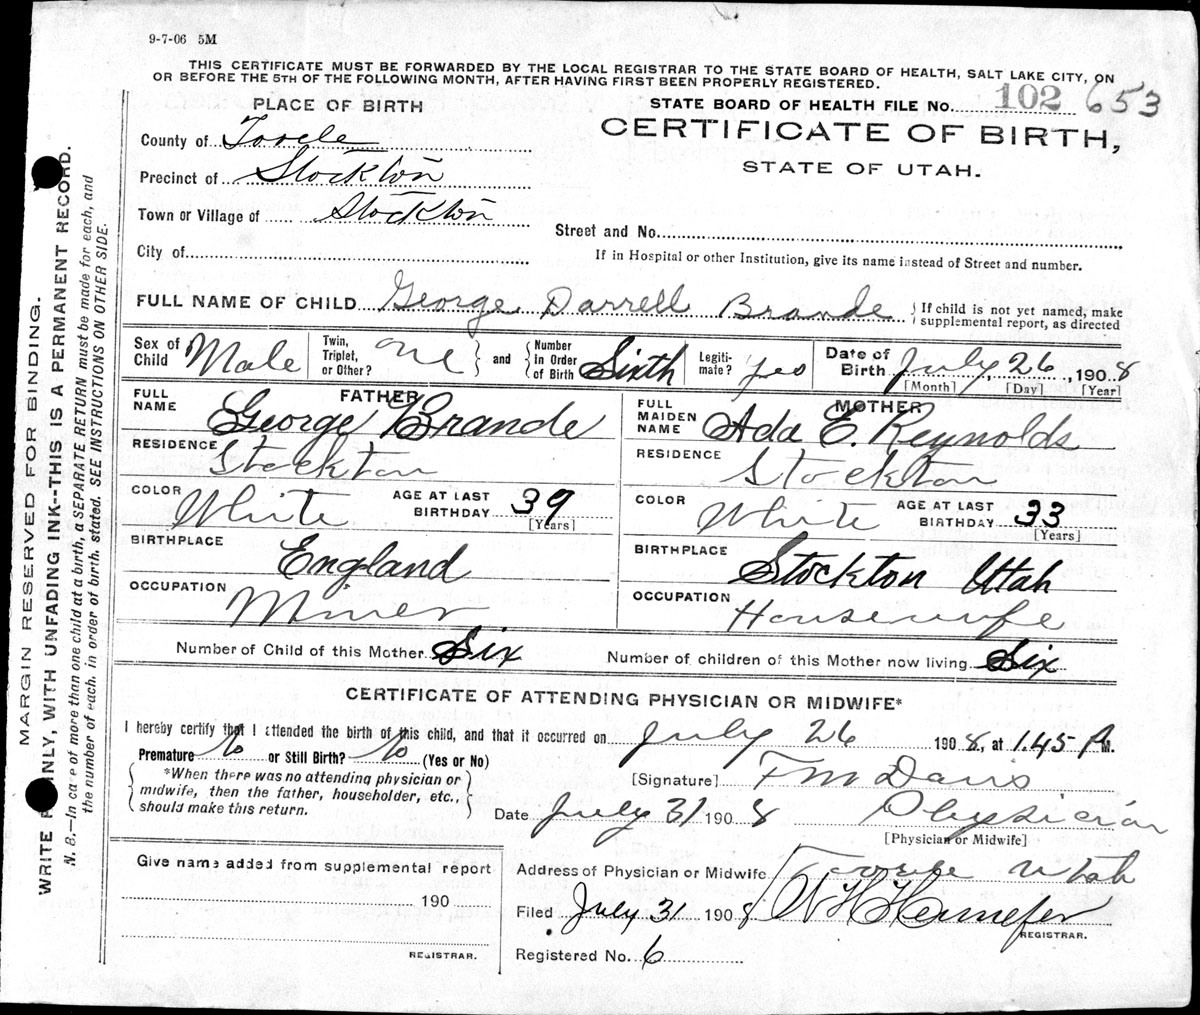 9-7-06 5M
THIS CERTIFICATE MUST BE FORWARDED BY THE LOCAL REGISTRAR TO THE STATE BOARD OF HEALTH, SALT LAKE CITY, ON
OR BEFORE THE 5TH OF THE FOLLOWING MONTH, AFTER HAVING FIRST BEEN PROPERLY REGISTERED.
PLACE OF BIRTH
STATE BOARD OF HEALTH FILE No. 102 653
CERTIFICATE OF BIRTH,
STATE OF UTAH.
County of Tooele
Precinct of Stockton
Town or Village of Stockton
Street and No.
City of
If in Hospital or other Institution, give its name instead of Street and number.
FULL NAME OF CHILD George Darrell Brande { If child is not yet named, make supplemental report, as directed
Sex of Child Male Twin, Triplet, or Other? One } and { Number in Order of Birth Sixth Legitimate? yes Date of Birth July, 26, 1908
[Month] [Day] [Year]
FATHER
FULL NAME George Brande
RESIDENCE Stockton
COLOR White AGE AT LAST BIRTHDAY 39
[Years]
BIRTHPLACE England
OCCUPATION Miner
MOTHER
FULL MAIDEN NAME Ada E. Reynolds
RESIDENCE Stockton
COLOR White AGE AT LAST BIRTHDAY 33
[Years]
BIRTHPLACE Stockton Utah
OCCUPATION Housewife
Number of Child of this Mother Six Number of children of this Mother now living Six
CERTIFICATE OF ATTENDING PHYSICIAN OR MIDWIFE*
I hereby certify that I attended the birth of this child, and that it occurred on July 26 1908, at 1.45 A.M.
Premature No or Still Birth? No (Yes or No)
{ *When there was no attending physician or
midwife, then the father, householder, etc.,
should make this return. }
[Signature] T M Davis
Date July 31 1908 Physician
[Physician or Midwife]
Give name added from supplemental report
190
REGISTRAR.
Address of Physician or Midwife Tooele Utah
Filed July 31 1908
REGISTRAR.
Registered No. 6
MARGIN RESERVED FOR BINDING.
WRITE PLAINLY, WITH UNFADING INK--THIS IS A PERMANENT RECORD.
N. B.—In case of more than one child at a birth, a SEPARATE RETURN must be made for each, and
the number of each, in order of birth, stated. SEE INSTRUCTIONS ON OTHER SIDE.